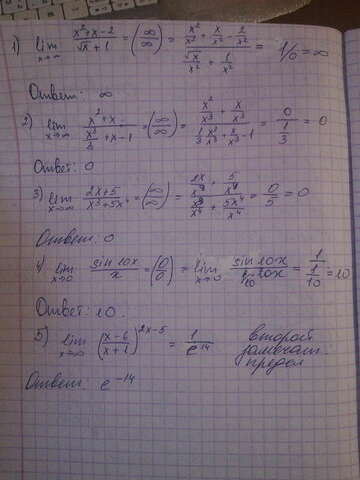 1) lim x→∞ (x²+x-2)/(√x+1) = (∞/∞) = (x²/x² + x/x² - 2/x²)/(√x/x² + 1/x²) = 1/0 = ∞
Ответ: ∞
2) lim x→∞ (x²+x)/(x³/3+x-1) = (∞/∞) = (x²/x³ + x/x³)/(1/3 x³/x³ + x/x³ - 1) = 0/(1/3) = 0
Ответ: 0
3) lim x→∞ (2x+5)/(x³+5x⁴) = (∞/∞) = (2x/x⁴ + 5/x⁴)/(x³/x⁴ + 5x⁴/x⁴) = 0/5 = 0
Ответ: 0
4) lim x→0 sin10x/x = (0/0) = lim x→0 sin10x/(1/10 10x) = 1/(1/10) = 10
Ответ: 10.
5) lim x→∞ ((x-6)/(x+1))^(2x-5) = 1/e^14 второй
замечат.
предел
Ответ: e⁻¹⁴